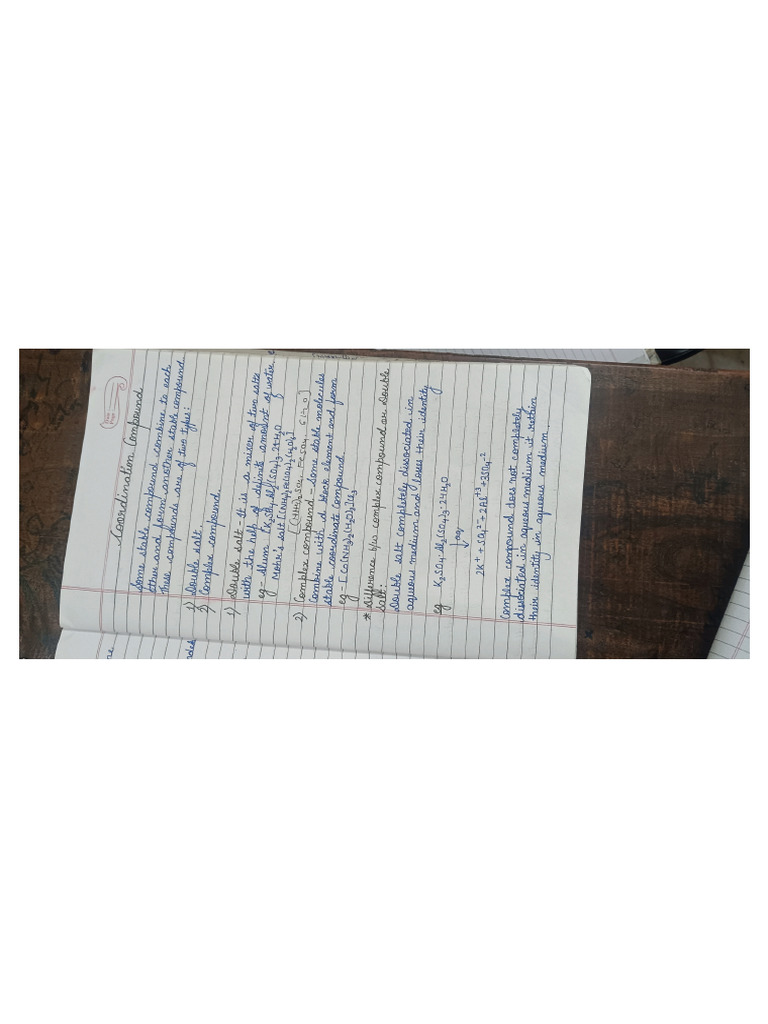 Coordination Compound
Some stable compound combine to each
other and form another stable compound.
These compounds are of two types:
1) Double salt
2) Complex compound.
1) Double salt - It is a mixer of two salts
with the help of definite amount of water.
eg - Alum [K₂SO₄.Al₂(SO₄)₃.24H₂O
Mohr's salt [(NH₄)₂Fe(SO₄)₂(H₂O)₆]
[(NH₄)₂SO₄. FeSO₄. 6H₂O]
2) Complex compound - Some stable molecules
combine with d block element and form
stable coordinate compound.
eg - [Co(NH₃)₂(H₂O)₂]Cl₃
* Difference b/w complex compound or Double
salt:
Double salt completely dissociated in
aqueous medium and loses their identity
eg K₂SO₄.Al₂(SO₄)₃.24H₂O
↓aq.
2K⁺ + SO₄²⁻ + 2Al⁺³ + 3SO₄⁻²
Complex compound does not completely
dissociated in aqueous medium it retain
their identity in aqueous medium.